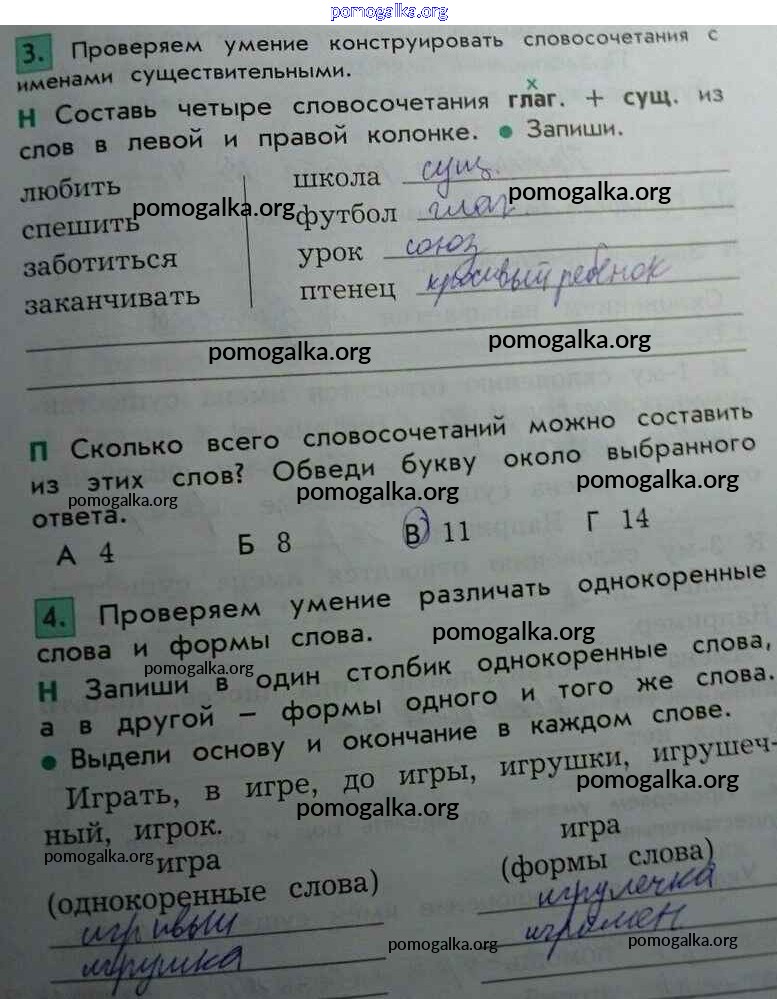 pomogalka.org
3. Проверяем умение конструировать словосочетания с
именами существительными.
Н Составь четыре словосочетания глаг. + сущ. из
х
слов в левой и правой колонке. • Запиши.
любить школа сущ.
спешить pomogalka.org футбол глаг pomogalka.org
заботиться урок союз
заканчивать птенец красивый ребёнок
pomogalka.org pomogalka.org
П Сколько всего словосочетаний можно составить
из этих слов? Обведи букву около выбранного
ответа. pomogalka.org pomogalka.org pomogalka.org
А 4 Б 8 В 11 Г 14
4. Проверяем умение различать однокоренные
слова и формы слова. pomogalka.org
pomogalka.org
Н Запиши в один столбик однокоренные слова,
а в другой – формы одного и того же слова.
• Выдели основу и окончание в каждом слове.
Играть, в игре, до игры, игрушки, игрушеч-
ный, игрок. pomogalka.org pomogalka.org
pomogalka.org игра игра
(однокоренные слова) (формы слова)
игривый игрулечка
игрушка играмен
pomogalka.org pomogalka.org